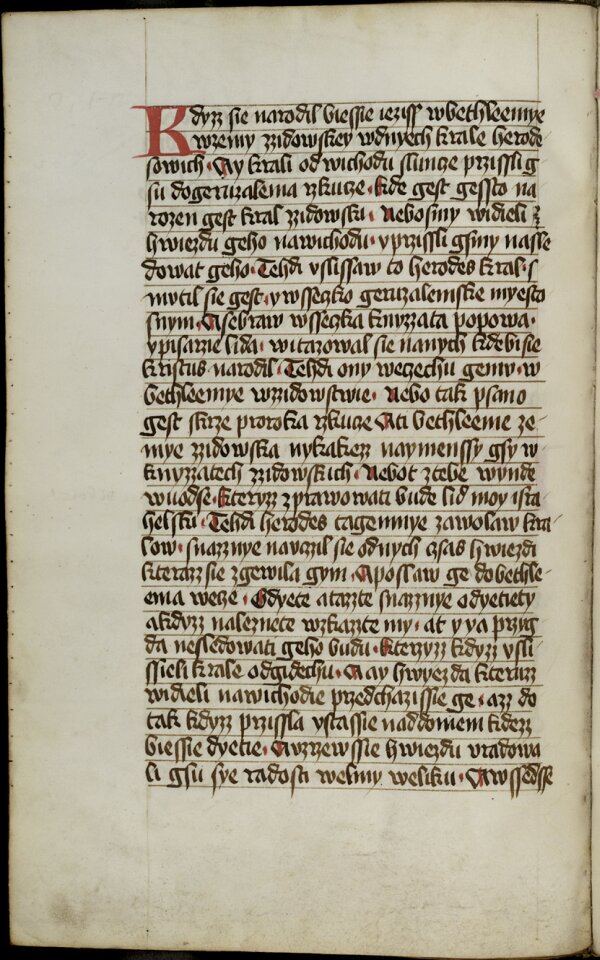 Kdyzz sie narodil biessie ieziss wbethleemye
wzemy zzidowskey wdnyech krale herode
sowich · Ay krali od wichodu slunce przissli g
su dogeruzalema rzkuce · Kde gest gessto na
rozen gest kral zzidowski · Nebo smy widieli z
hwiezdu geho nawichodu · y przissli gsmy nasle
dowat geho · Tehdi uslissaw to herodes kral · s
mutil sie gest · y wsseczko geruzalemske myesto
snym · A sebraw wsseczka knyzzata popowa ·
y pisarzie lida · witazowal sie nanych kdebi sie
kristus narodil · Tehdi ony wecechu gemy · w
bethleemye wzzidowstwie · Nebo tak psano
gest skrze proroka rzkuce A ti bethleeme ze
mye zzidowska nykakezz naymenssy gsy w
knyzzatech zzidowskich · Nebot ztebe wynde
wuodse · kteryzz zprawowati bude lid moy isra
helski · Tehdi herodes tagemnye zawolaw kra
low · snazznye nauczil sie odnych czas hwiezdi
kterazz sie zgewila gym · A poslaw ge dobethle
ema wece · Gdyete a tazzte snazznye odyetiety
a kdyzz naleznete wzkazzte my · at y ya przyg
da nesledowati geho budu · Kteryzz kdyzz usli
ssieli krale odgidechu · A ay hwyezda kteruzz
widieli nawichodie przedchazissie ge · azz do
tak kdyzz przissla ustassie naddomem kdezz
biessie dyetie · A uzrzewssie hwiezdu uradowa
li gsu sye radosti welmy weliku · A wssedsse